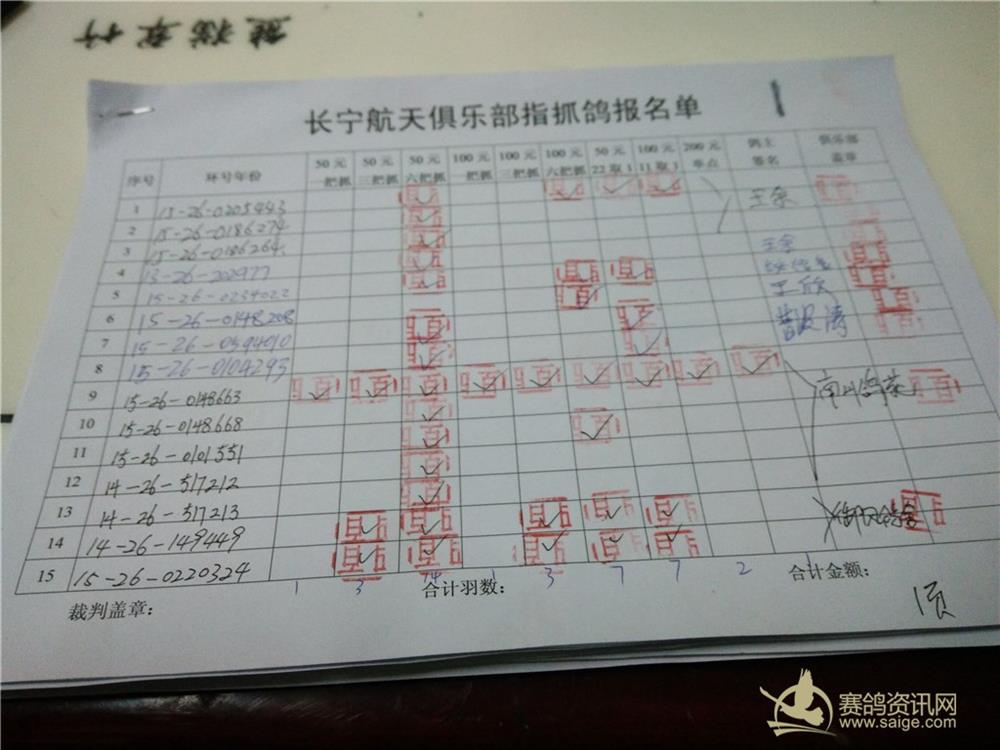 长宁航天俱乐部指抓鸽报名单
序号 环号年份 50元一把抓 50元三把抓 50元六把抓 100元一把抓 100元三把抓 100元六把抓 50元22取1 100元11取3 200元单点 鸽主签名 俱乐部盖章
1 15-26-0205443 王余
2 15-26-0186274
3 15-26-0186264
4 13-26-202977 王余
5 15-26-0234022
6 15-26-0148208 王欣
7 15-26-0394010
8 15-26-0104293
9 15-26-0148663
10 15-26-0148668
11 15-26-0101551
12 14-26-517212
13 14-26-517213
14 14-26-149449
15 15-26-0220324
1 3 14 1 3 7 7 2 1
裁判盖章: 合计羽数: 合计金额:
1页
赛鸽资讯网
www.saige.com